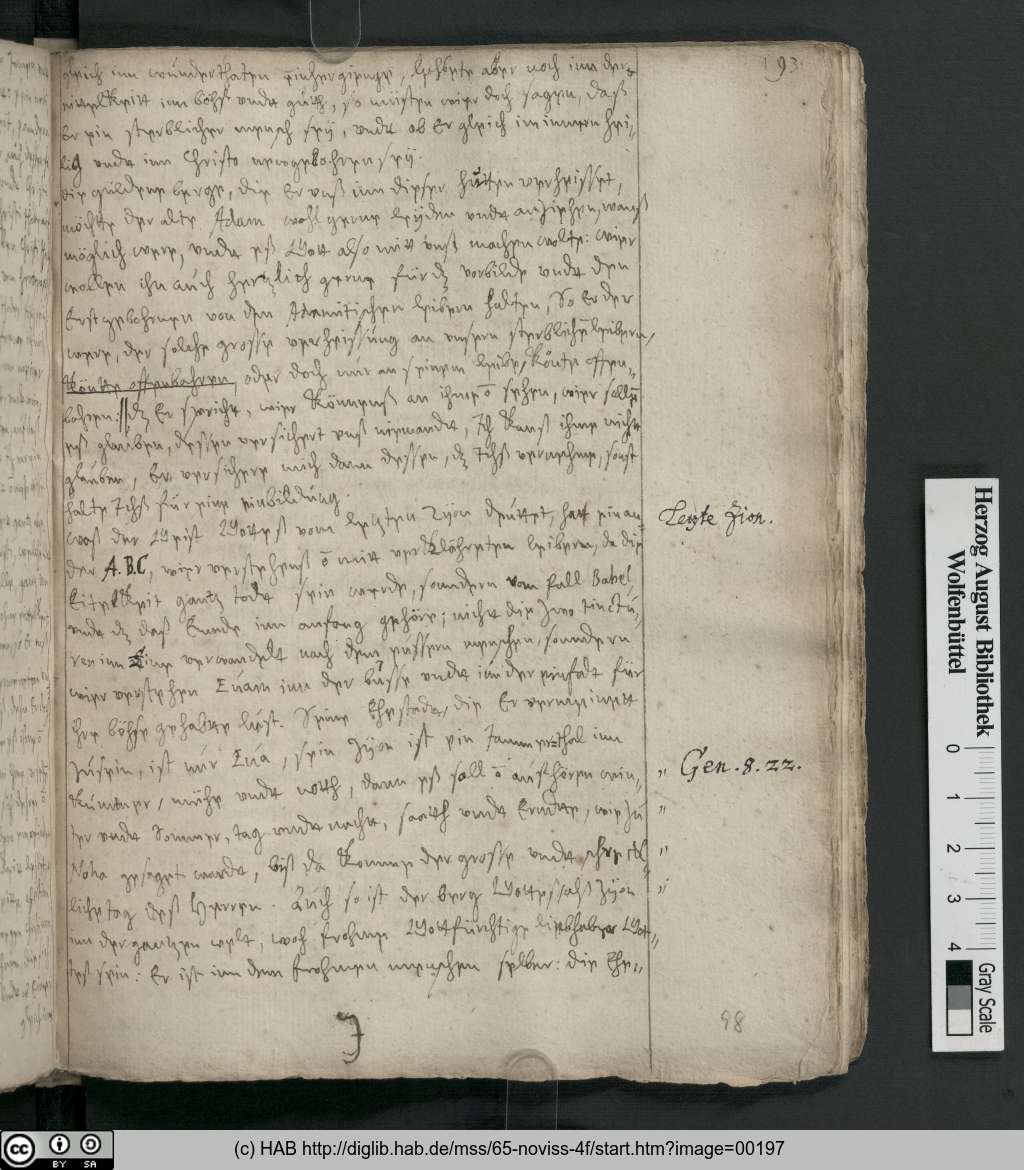 193
gleich inn wunderthaten einher gienge, lehbete aber noch inn der
eittelkeitt inn böhß undt guth, so müsten wier doch sagen, daß
Er ein sterblicher mensch sey, undt ob Er gleich im innern hei-
lig undt inn Christo newgebohren sey.
die güldene berge, die Er unß inn dieser hütten verheisset,
möchte der alte Adam wohl gerne leyden undt anziehen, wanß
möglich were, undt eß Gott also mitt unß machen wolte: wier
wollen ihn auch hertzlich gerne für dz vorbilde undt den
Erstgebohrnen von den Adamitischen leibern halten, So Er der
were, der solche grosse verheissung an unsern sterblichē leibern,
könte offenbahren, oder doch nur an seinem leibe, könte offen-
bahren: // dz Er spricht, wier könnenß an ihme ō sehen, wier sollē
eß glauben, dessen versichert unß niemandt, Ich kanß ihme nicht
glauben, Er versichere mich dann dessen, dz Ichß vernehme, sonst
halte Ichß für eine einbildung.
waß der Geist Gotteß vom letzten Zion deutet, hatt ein an-
der A.B.C, wier verstehenß ō mitt verklöhrten leibern, da die
Eitelkeit gantz todt sein werde, sondern vom fall Babel,
undt dz daß Ende inn anfang gehöre; nicht die zwo tinctu-
ren inn Eine verwandelt nach dem eussern menschen, sondern
wier verstehen Euam inn der busse undt inn der einfalt für
ihre böhse gehabte lust. Seine Ehestadt, die Er vermeinett
zu sein, ist nur Eua, sein Zyon ist ein Jammerthal inn
kummer, mühe undt noth, dann eß soll ō aufhören win-
ter undt Sommer, tag undt nacht, saath undt Erndte, wie zu
Noha gesaget wardt, biß da komme der grosse undt schre[ck]-
liche tag deß Herren. Auch so ist der berg Gotteß alß Zyon
inn der gantzen welt, woh fromme Gottfürchtige liebhaber Got-
teß sein: Er ist inn dem frohmen menschen selber: die Ehe-
Letzte Zion.
" Gen. 8. 22.
"
"
"
98
Herzog August Bibliothek
Wolfenbüttel
0 1 2 3 4
Gray Scale
cc BY SA
(c) HAB http://diglib.hab.de/mss/65-noviss-4f/start.htm?image=00197